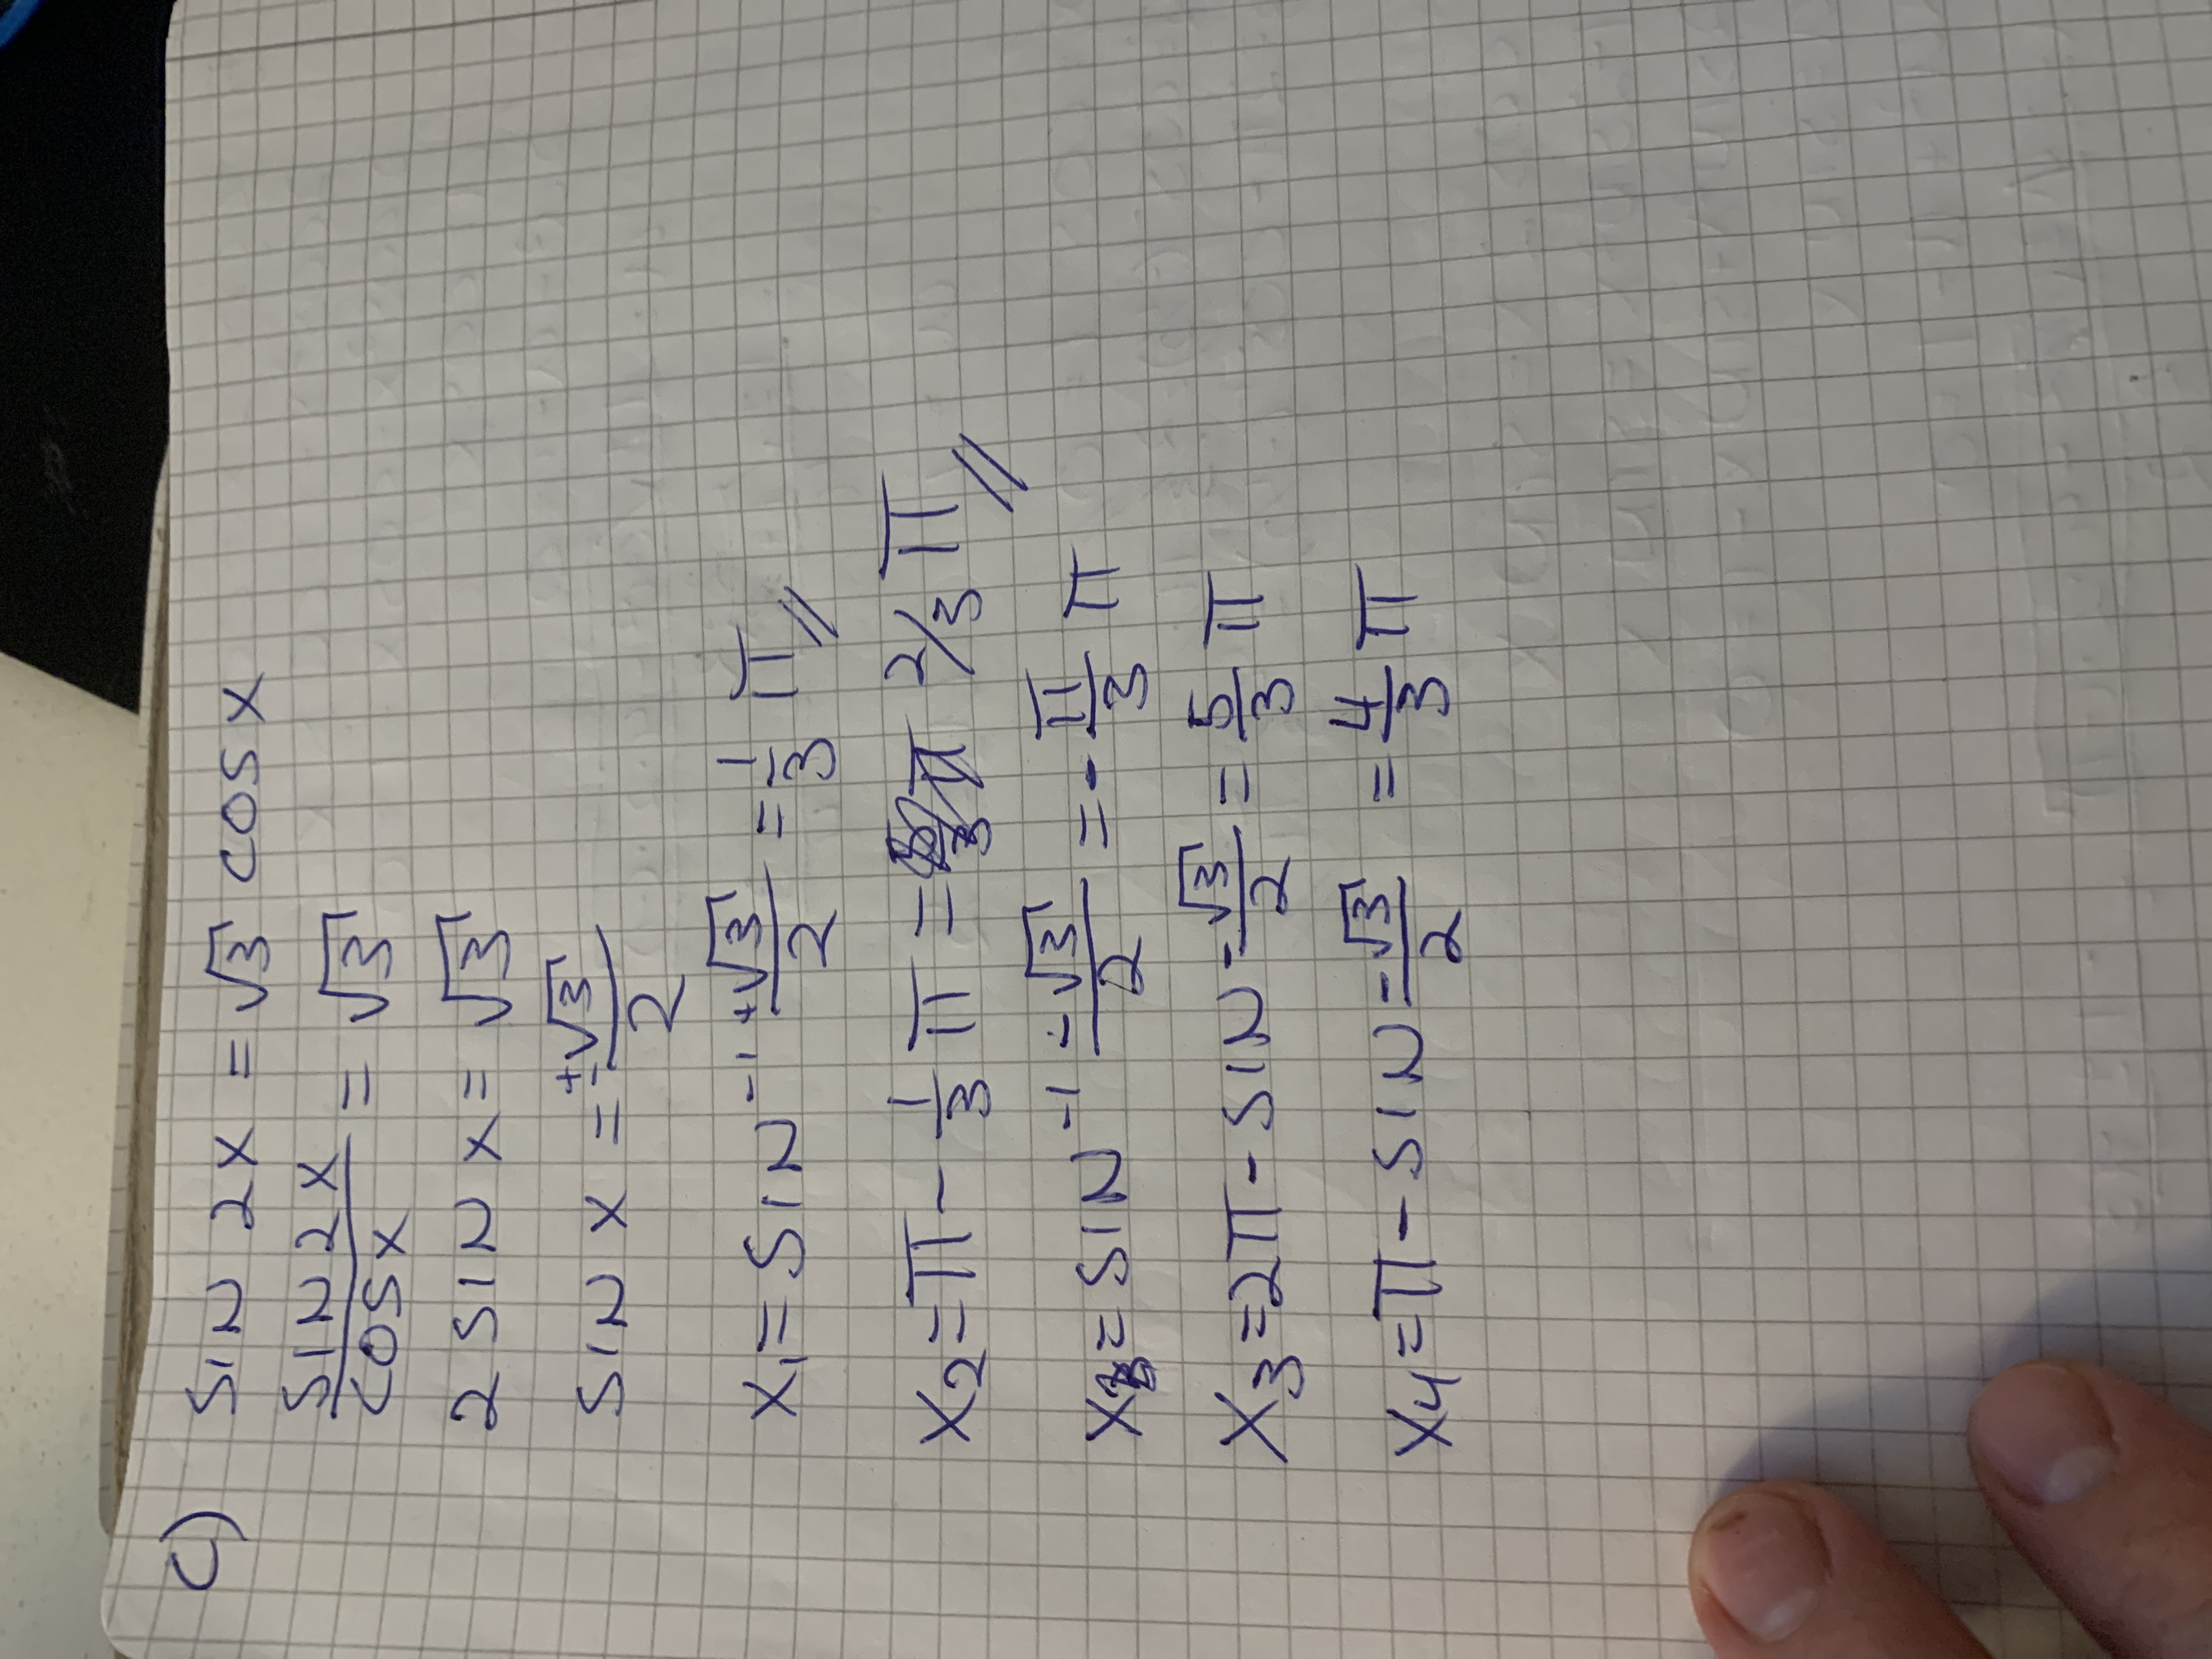 c) SIN 2X = √3 COS X
SIN 2X / COS X = √3
2 SIN X = √3
SIN X = ±√3/2
X₁ = SIN⁻¹ +√3/2 = 1/3 π //
X₂ = π - 1/3 π = 2/3 π //
X₃ = SIN⁻¹ -√3/2 = - π/3 π
X₃ = 2π - SIN -√3/2 = 5/3 π
X₄ = π - SIN -√3/2 = 4/3 π